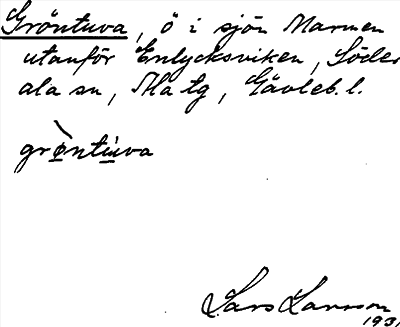 Gröntuva, ö i sjön Marmen
utanför Enlycksviken, Söder
ala sn, Ma tg, Gävleb. l.
gròntuva
Lars Larsson
193.